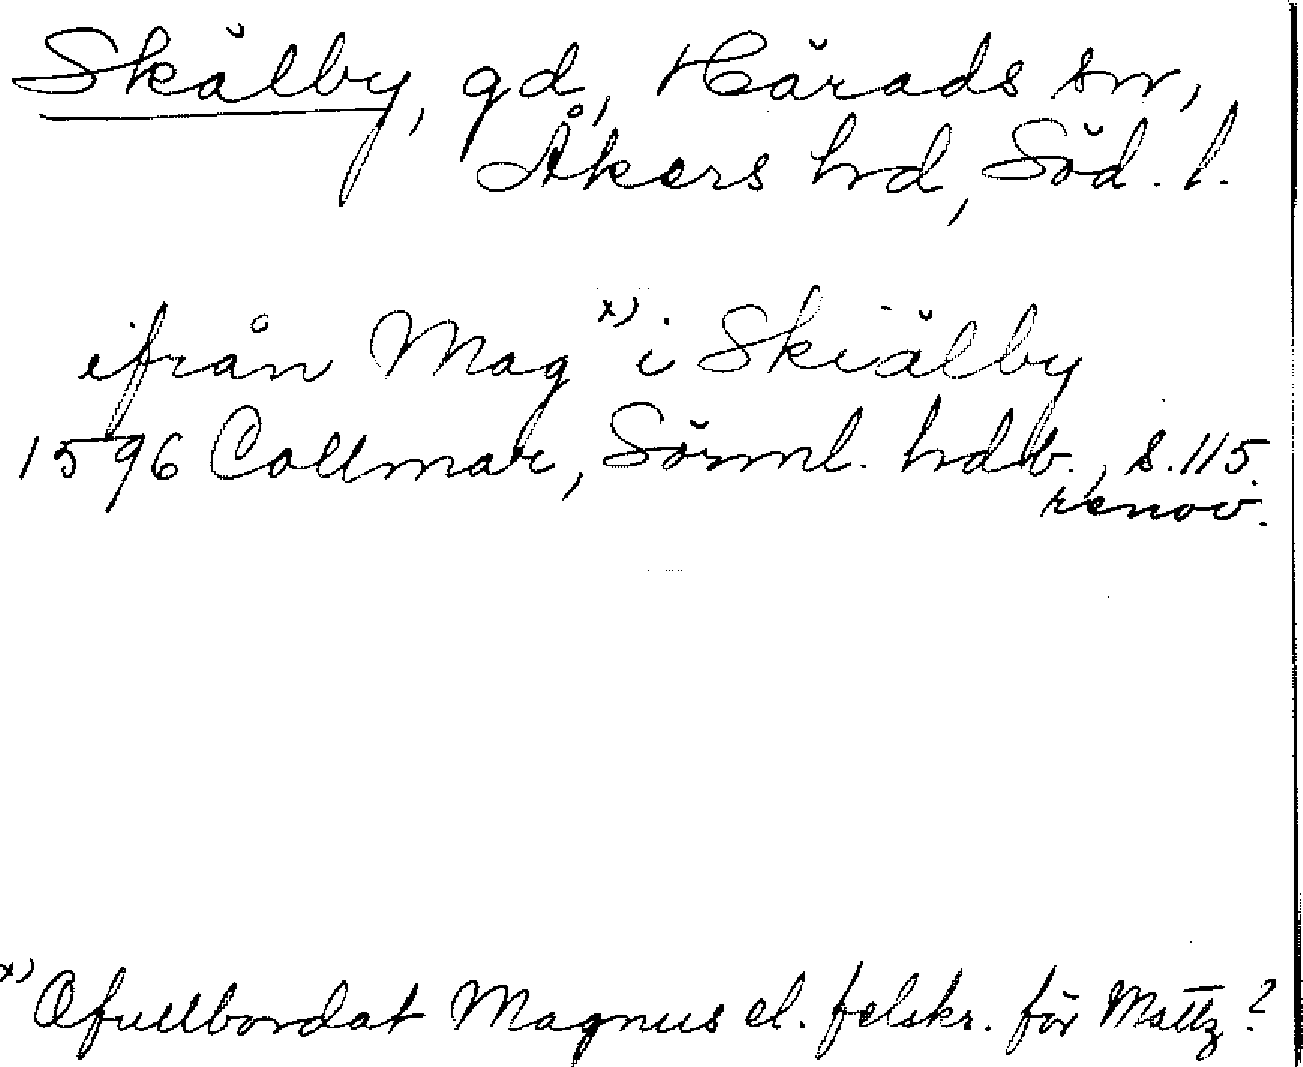 Skälby, gd, Härads sn,
Åkers hd, Söd. l.
ifrån Mag x) i Skiälby
1596 Collmar, Sörml. hdb., s. 115
renov.
x) Ofullbordat Magnus el. felskr. för Mattz?